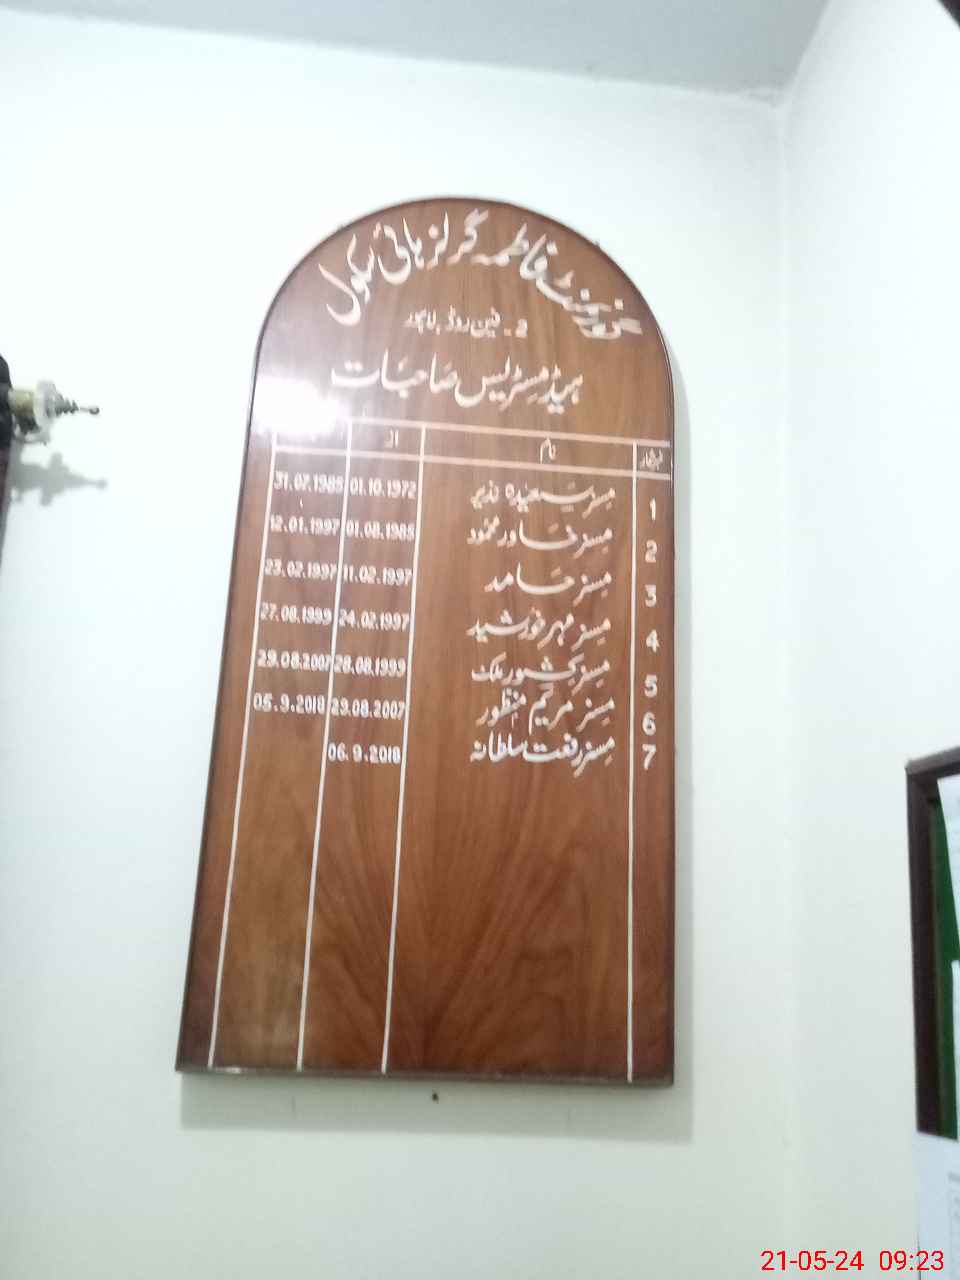 گورنمنٹ فاطمہ گرلز ہائی سکول
2 - فین روڈ، لاہور
ہیڈ مسٹریس صاحبات
نمبر شمار نام از
1 مسز سعیدہ نذیر 01.10.1972 31.07.1985
2 مسز خاور محمود 01.08.1985 12.01.1997
3 مسز حامد 11.02.1997 23.02.1997
4 مسز مہر خورشید 24.02.1997 27.08.1999
5 مسز کشور ملک 28.08.1999 29.08.2007
6 مسز مریم منظور 29.08.2007 05.9.2018
7 مسز رفعت سلطانہ 06.9.2018
21-05-24 09:23